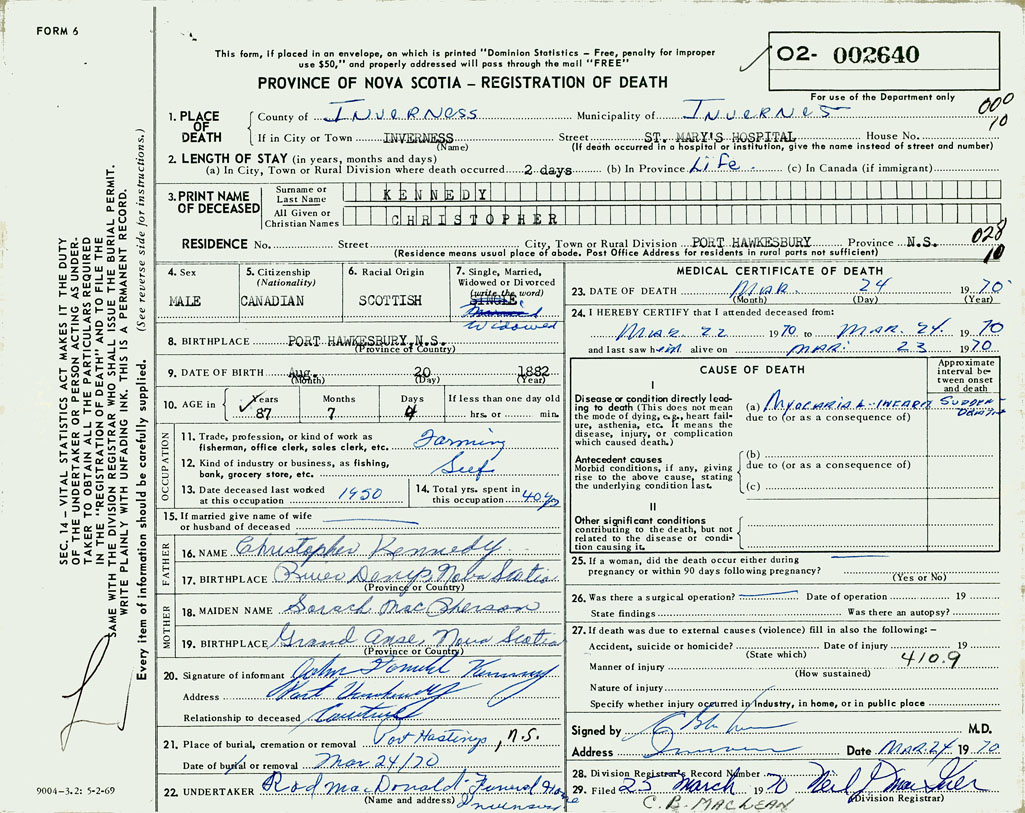 FORM 6
This form, if placed in an envelope, on which is printed "Dominion Statistics – Free, penalty for improper
use $50," and properly addressed will pass through the mail "FREE"
02- 002640
For use of the Department only
PROVINCE OF NOVA SCOTIA – REGISTRATION OF DEATH
000
10
1. PLACE OF DEATH
County of Inverness Municipality of Inverness
If in City or Town INVERNESS Street ST. MARY'S HOSPITAL House No.
(Name) (If death occurred in a hospital or institution, give the name instead of street and number)
2. LENGTH OF STAY (in years, months and days)
(a) In City, Town or Rural Division where death occurred 2 days (b) In Province Life (c) In Canada (if immigrant)
3. PRINT NAME OF DECEASED
Surname or Last Name KENNEDY
All Given or Christian Names CHRISTOPHER
028
10
RESIDENCE No. Street City, Town or Rural Division PORT HAWKESBURY Province N.S.
(Residence means usual place of abode. Post Office Address for residents in rural parts not sufficient)
4. Sex
MALE
5. Citizenship
(Nationality)
CANADIAN
6. Racial Origin
SCOTTISH
7. Single, Married,
Widowed or Divorced
(write the word)
SINGLE
Married
Widowed
8. BIRTHPLACE PORT HAWKESBURY, N.S.
(Province or Country)
9. DATE OF BIRTH Aug. 20 1882
(Month) (Day) (Year)
10. AGE in Years Months Days If less than one day old
87 7 4 hrs. or min.
OCCUPATION
11. Trade, profession, or kind of work as
fisherman, office clerk, sales clerk, etc. Farming
12. Kind of industry or business, as fishing,
bank, grocery store, etc. Self
13. Date deceased last worked
at this occupation 1950
14. Total yrs. spent in
this occupation 40 yrs
15. If married give name of wife
or husband of deceased
FATHER
16. NAME Christopher Kennedy
17. BIRTHPLACE River Denys, Nova Scotia
(Province or Country)
MOTHER
18. MAIDEN NAME Sarach MacPherson
19. BIRTHPLACE Grand Anse, Nova Scotia
(Province or Country)
20. Signature of informant John Kennedy
Address Port
Relationship to deceased
21. Place of burial, cremation or removal Port Hastings, N.S.
Date of burial or removal Mar 24/70
22. UNDERTAKER Rod MacDonald Funeral Home
(Name and address) Inverness
MEDICAL CERTIFICATE OF DEATH
23. DATE OF DEATH Mar. 24 1970
(Month) (Day) (Year)
24. I HEREBY CERTIFY that I attended deceased from:
Mar 22 1970 to Mar. 24. 1970
and last saw him alive on Mar. 23 1970
CAUSE OF DEATH
Approximate
interval be-
tween onset
and death
I
Disease or condition directly lead-
ing to death (This does not mean
the mode of dying, e.g., heart fail-
ure, asthenia, etc. It means the
disease, injury, or complication
which caused death.)
(a) Myocardial infarct
due to (or as a consequence of)
Sudden
Death
Antecedent causes
Morbid conditions, if any, giving
rise to the above cause, stating
the underlying condition last.
(b)
due to (or as a consequence of)
(c)
II
Other significant conditions
contributing to the death, but not
related to the disease or condi-
tion causing it.
25. If a woman, did the death occur either during
pregnancy or within 90 days following pregnancy?
(Yes or No)
26. Was there a surgical operation? Date of operation 19
State findings Was there an autopsy?
27. If death was due to external causes (violence) fill in also the following: –
Accident, suicide or homicide? Date of injury 19
(State which) 410.9
Manner of injury
(How sustained)
Nature of injury
Specify whether injury occurred in industry, in home, or in public place
Signed by M.D.
Address Inverness Date Mar 24 1970
28. Division Registrar's Record Number
29. Filed 25 March 1970
(Division Registrar)
C. B. MACLEAN
SEC. 14 – VITAL STATISTICS ACT MAKES IT THE DUTY
OF THE UNDERTAKER OR PERSON ACTING AS UNDER-
TAKER TO OBTAIN ALL THE PARTICULARS REQUIRED
IN THE "REGISTRATION OF DEATH" AND TO FILE THE
SAME WITH THE DIVISION REGISTRAR WHO SHALL ISSUE THE BURIAL PERMIT.
WRITE PLAINLY WITH UNFADING INK. THIS IS A PERMANENT RECORD.
Every item of information should be carefully supplied. (See reverse side for instructions.)
9004–3.2: 5-2-69